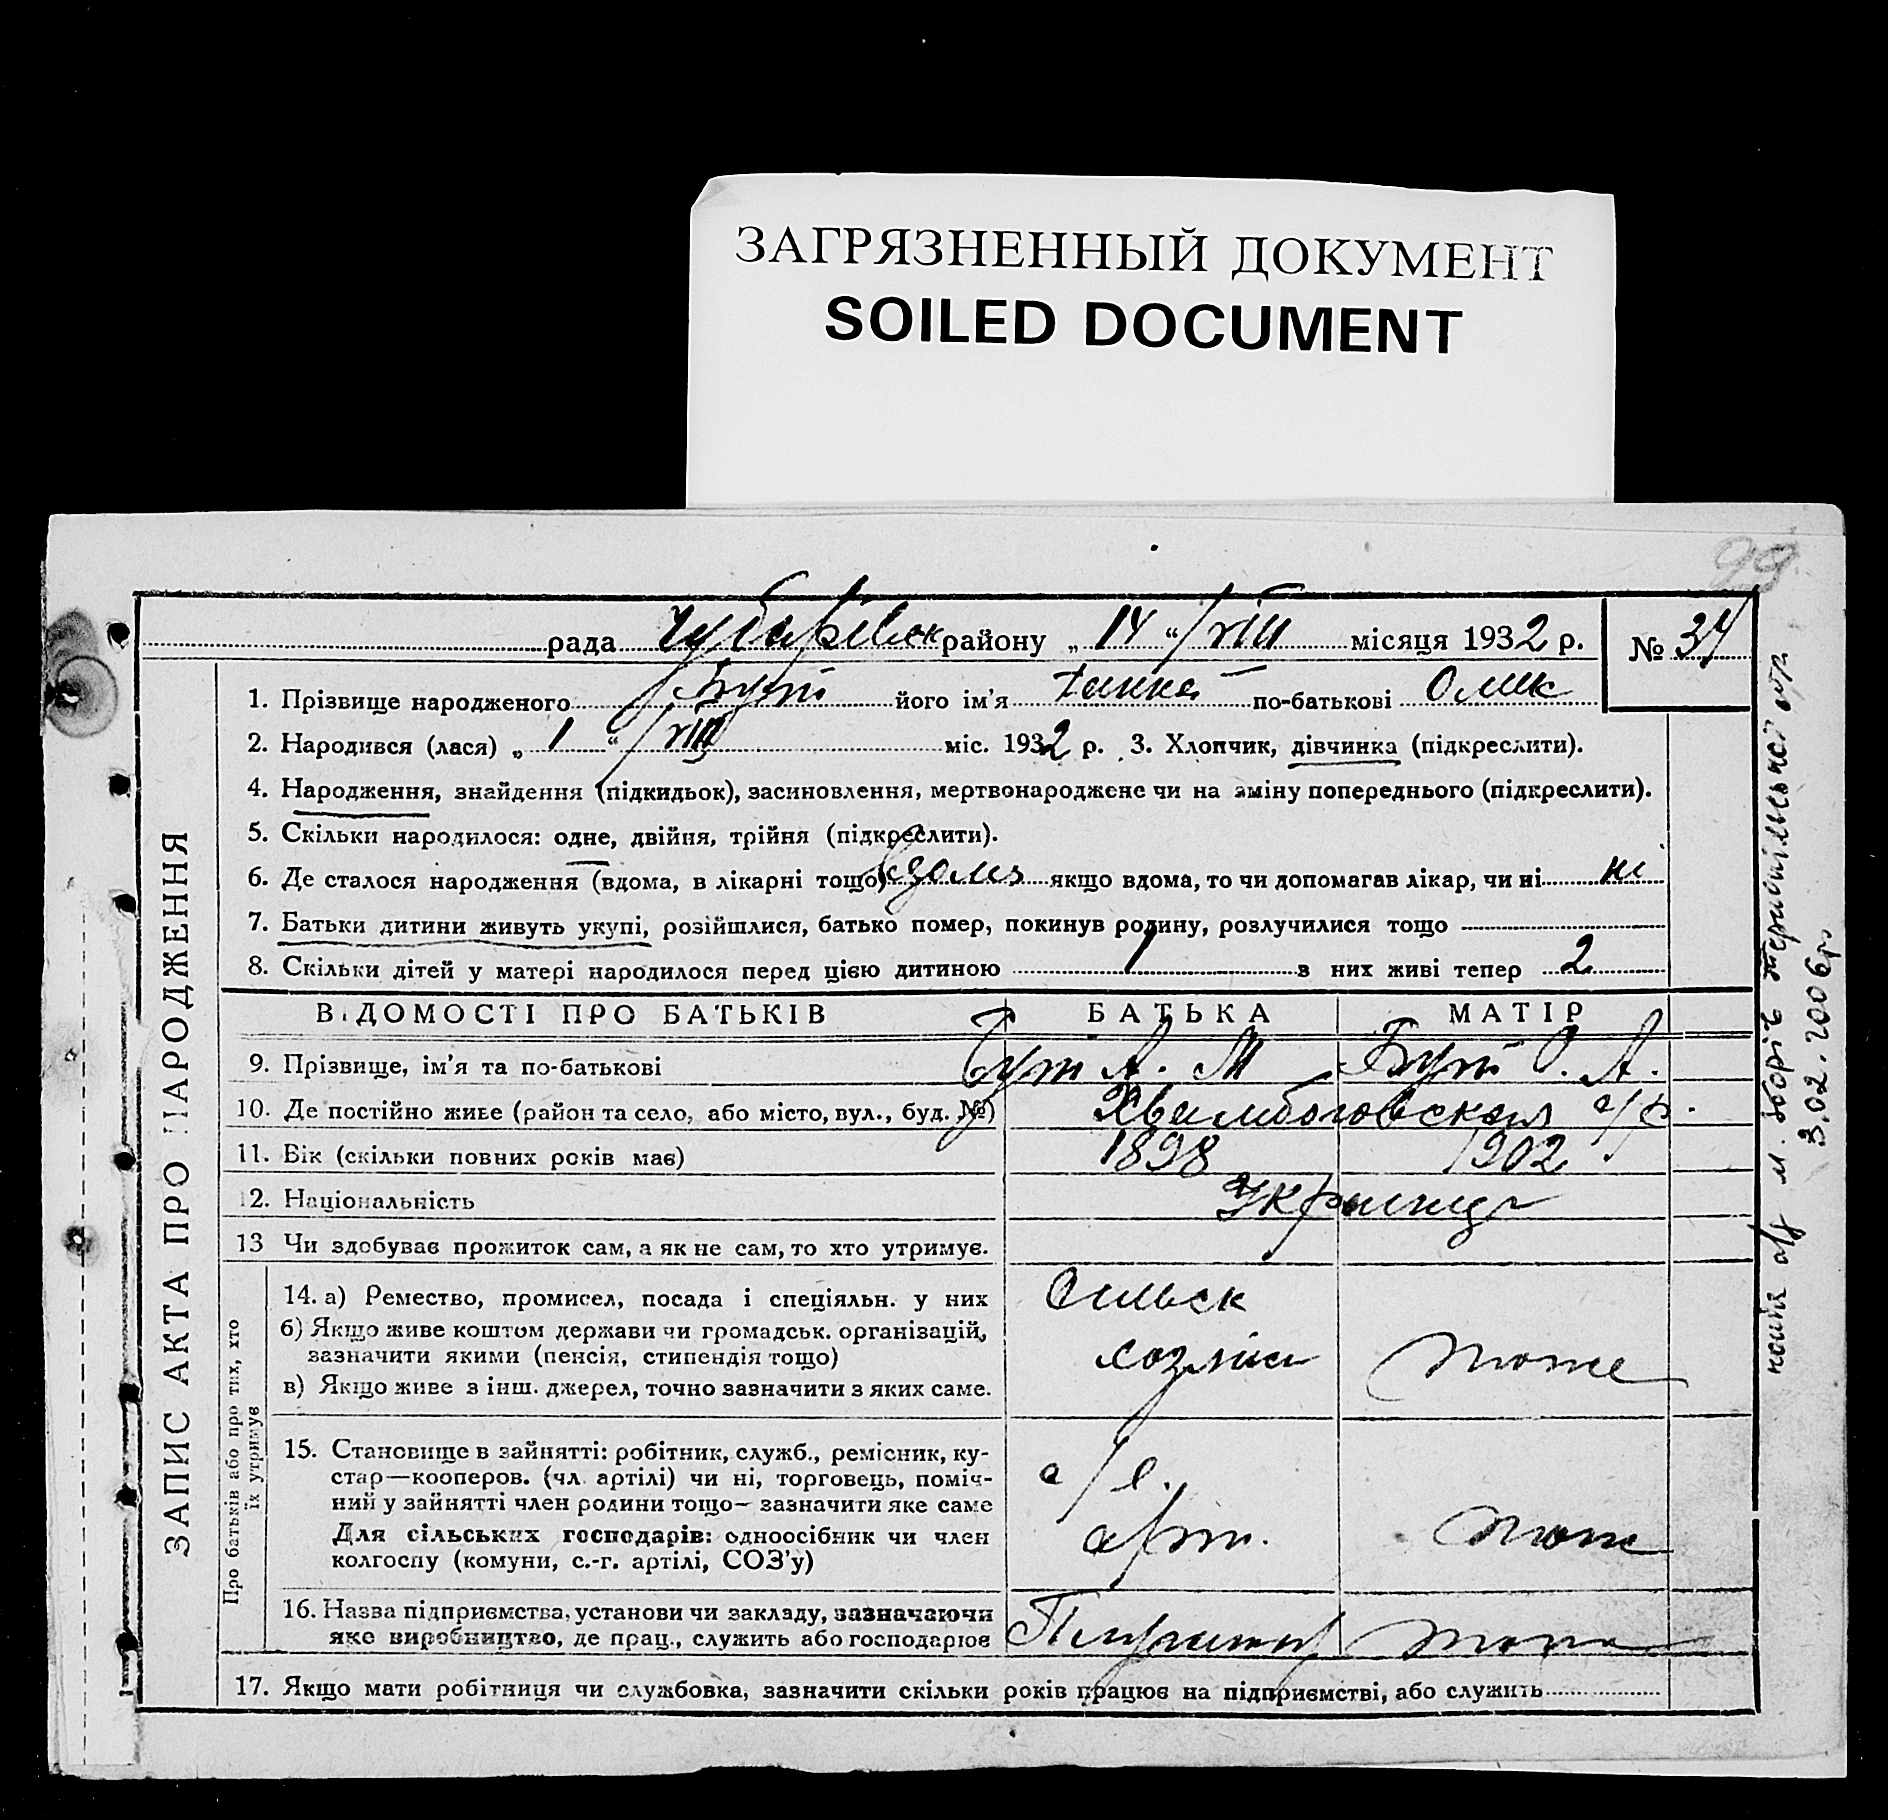 ЗАГРЯЗНЕННЫЙ ДОКУМЕНТ
SOILED DOCUMENT
99
рада Чубаревск району „14“ VIII місяця 1932 р. № 34
1. Прізвище народженого його ім'я по-батькові
2. Народився (лася) „1“ VIII міс. 1932 р. 3. Хлопчик, дівчинка (підкреслити).
4. Народження, знайдення (підкидьок), засиновлення, мертвонароджене чи на зміну попереднього (підкреслити).
5. Скільки народилося: одне, двійня, трійня (підкреслити).
6. Де сталося народження (вдома, в лікарні тощо) якщо вдома, то чи допомагав лікар, чи ні ні
7. Батьки дитини живуть укупі, розійшлися, батько помер, покинув родину, розлучилися тощо
8. Скільки дітей у матері народилося перед цією дитиною 1 з них живі тепер 2
ВІДОМОСТІ ПРО БАТЬКІВ БАТЬКА МАТІР
9. Прізвище, ім'я та по-батькові А. М О. А.
10. Де постійно живе (район та село, або місто, вул., буд. №) с/р.
11. Вік (скільки повних років має) 1898 1902
12. Національність
13 Чи здобуває прожиток сам, а як не сам, то хто утримує.
14. а) Ремество, промисел, посада і спеціяльн. у них Сильск
б) Якщо живе коштом держави чи громадськ. організацій,
зазначити якими (пенсія, стипендія тощо) тоже
в) Якщо живе з інш. джерел, точно зазначити з яких саме.
15. Становище в зайнятті: робітник, служб., ремісник, ку-
стар—кооперов. (чл. артілі) чи ні, торговець, поміч-
ний у зайнятті член родини тощо— зазначити яке саме
Для сільських господарів: одноосібник чи член арт. тоже
колгоспу (комуни, с.-г. артілі, СОЗ'у)
16. Назва підприємства, установи чи закладу, зазначаючи
яке виробництво, де прац., служить або господарює
17. Якщо мати робітниця чи службовка, зазначити скільки років працює на підприємстві, або служить
ЗАПИС АКТА ПРО НАРОДЖЕННЯ
Про батьків або про тих, хто
їх утримує
3.02.2006р.